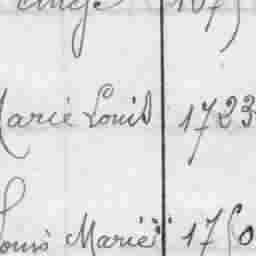 Marie Louis 1723
Louis Marie 1750